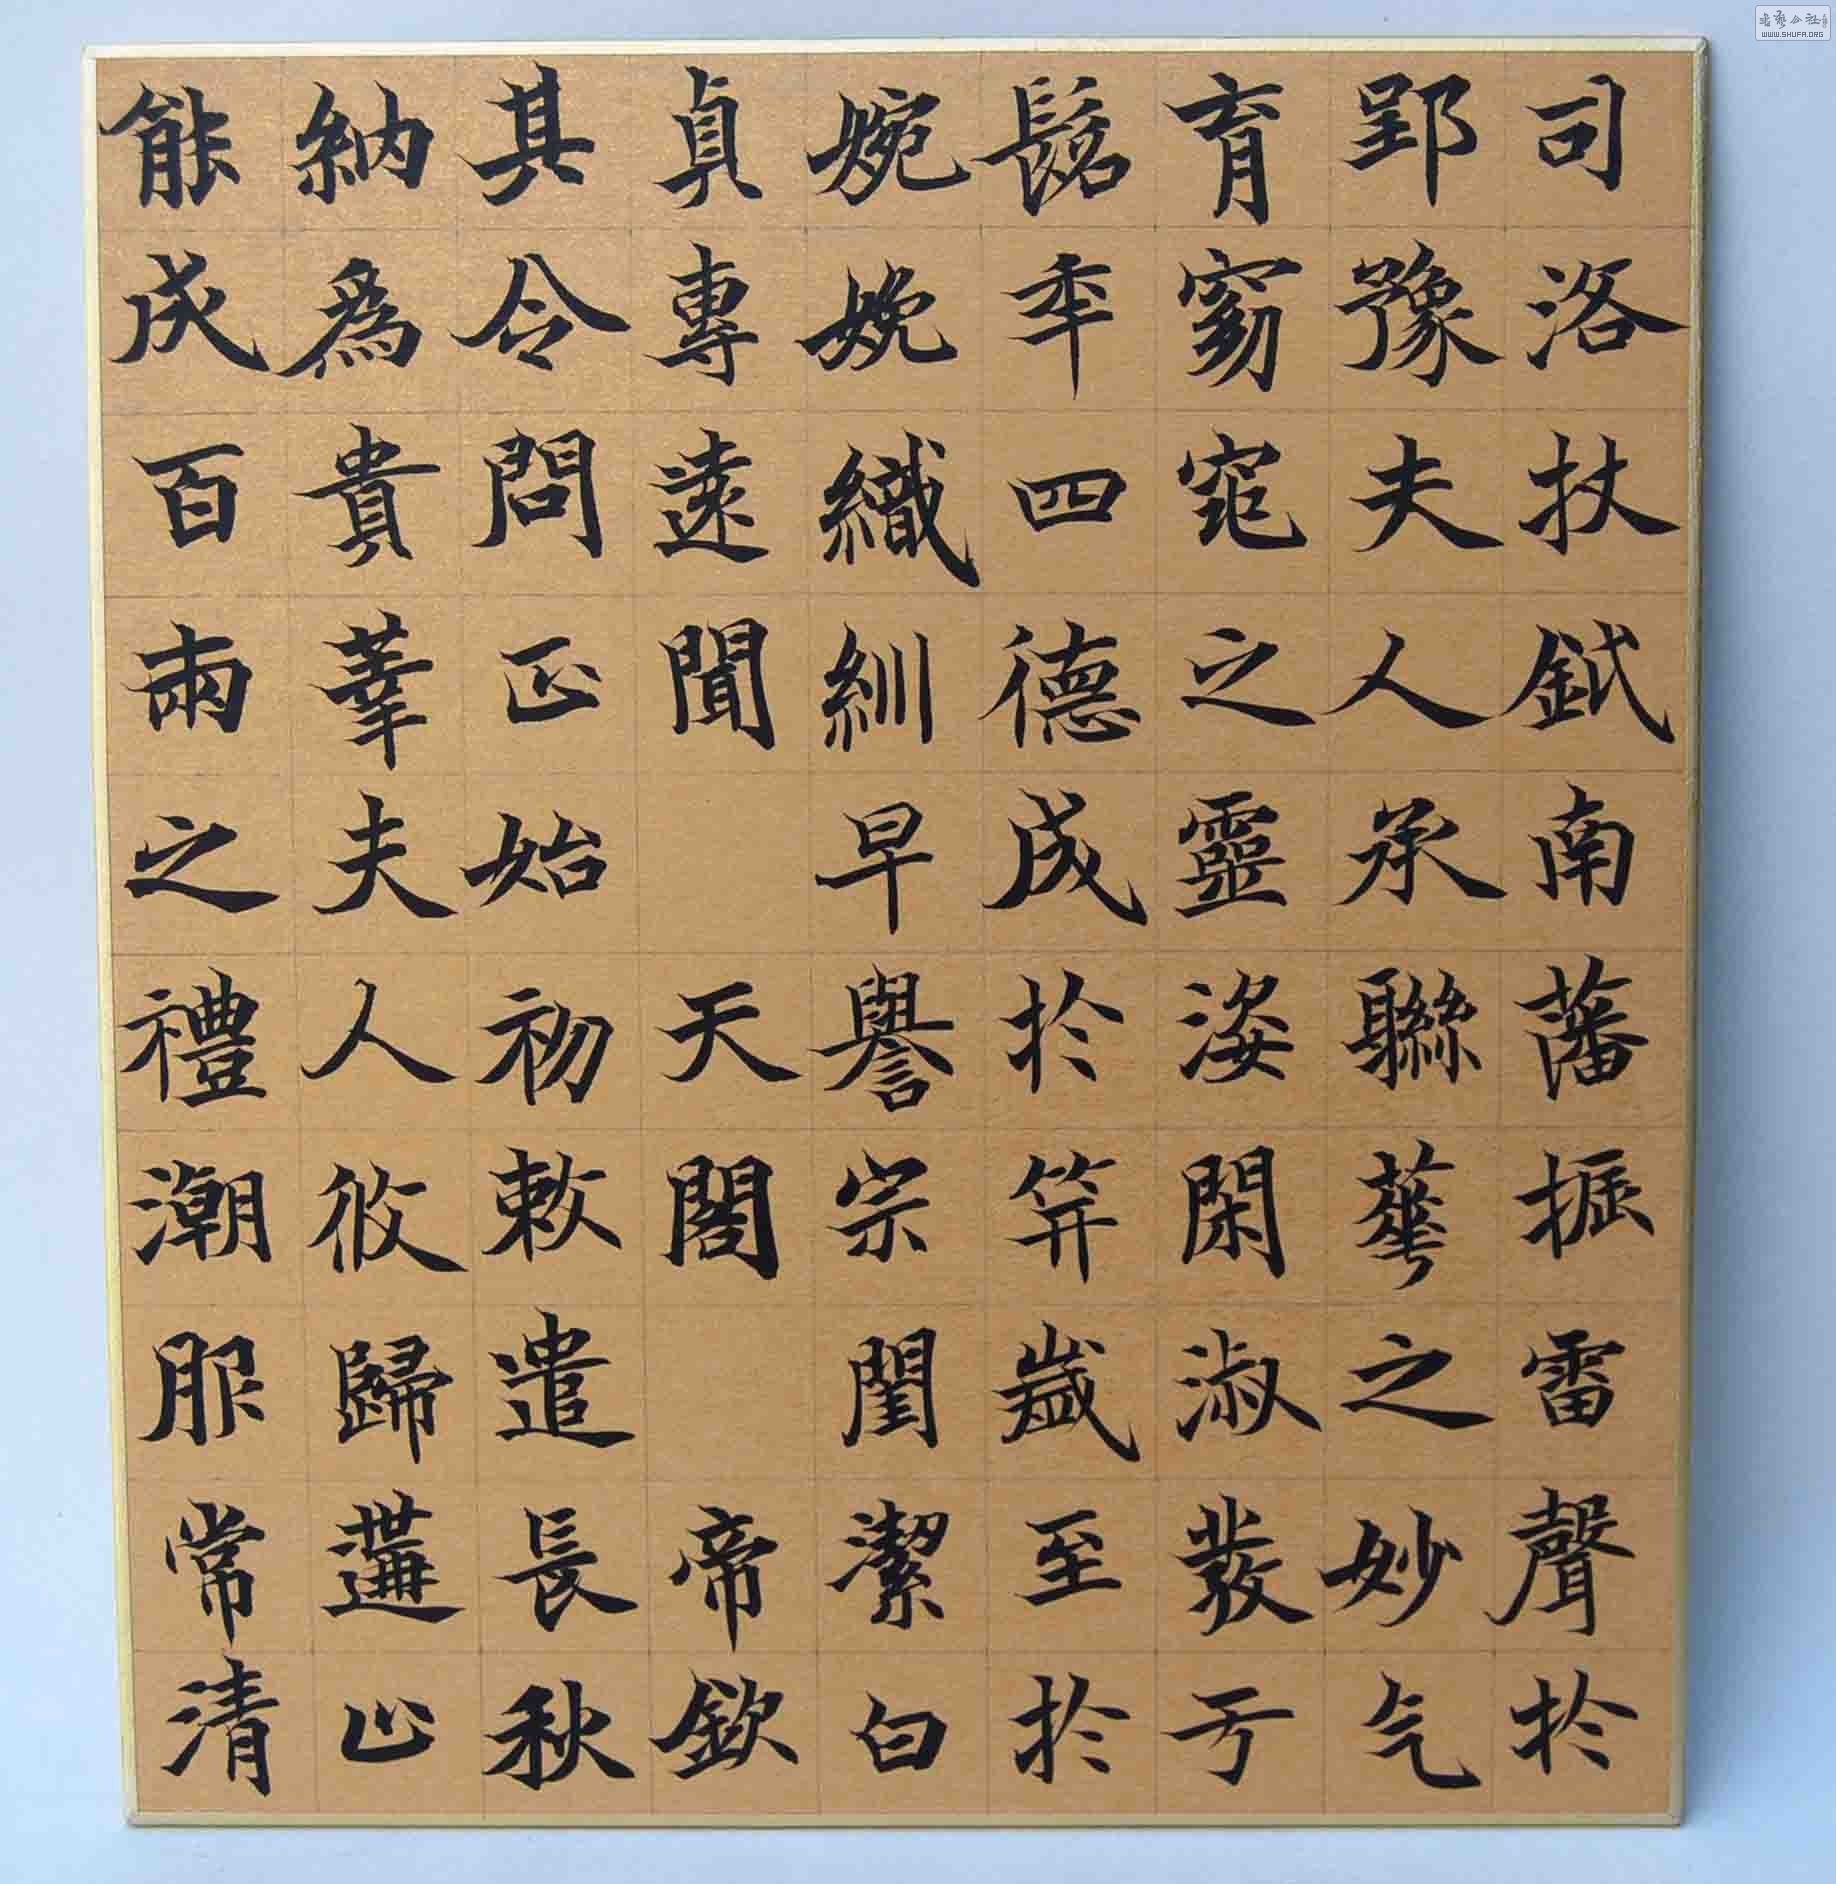 司洛扙鉞南藩振雷聲於
郢豫夫人承聯華之妙气
育窈窕之靈姿閑淑發于
髫年四德成於笄歲至於
婉娩織紃早譽宗閨潔白
貞專遠聞 天閣 帝欽
其令問正始初敕遣長秋
納為貴華夫人攸歸遘止
能成百兩之禮潮服常清
书藝公社
WWW.SHUFA.ORG